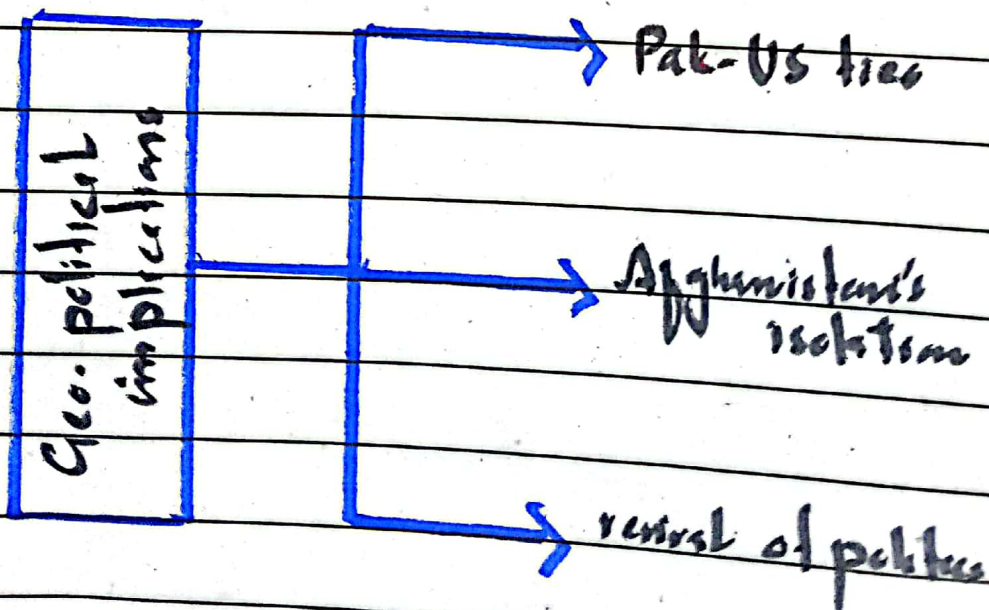 Geo-political
implications
Pak-US ties
Afghanistan's
isolation
revival of politics